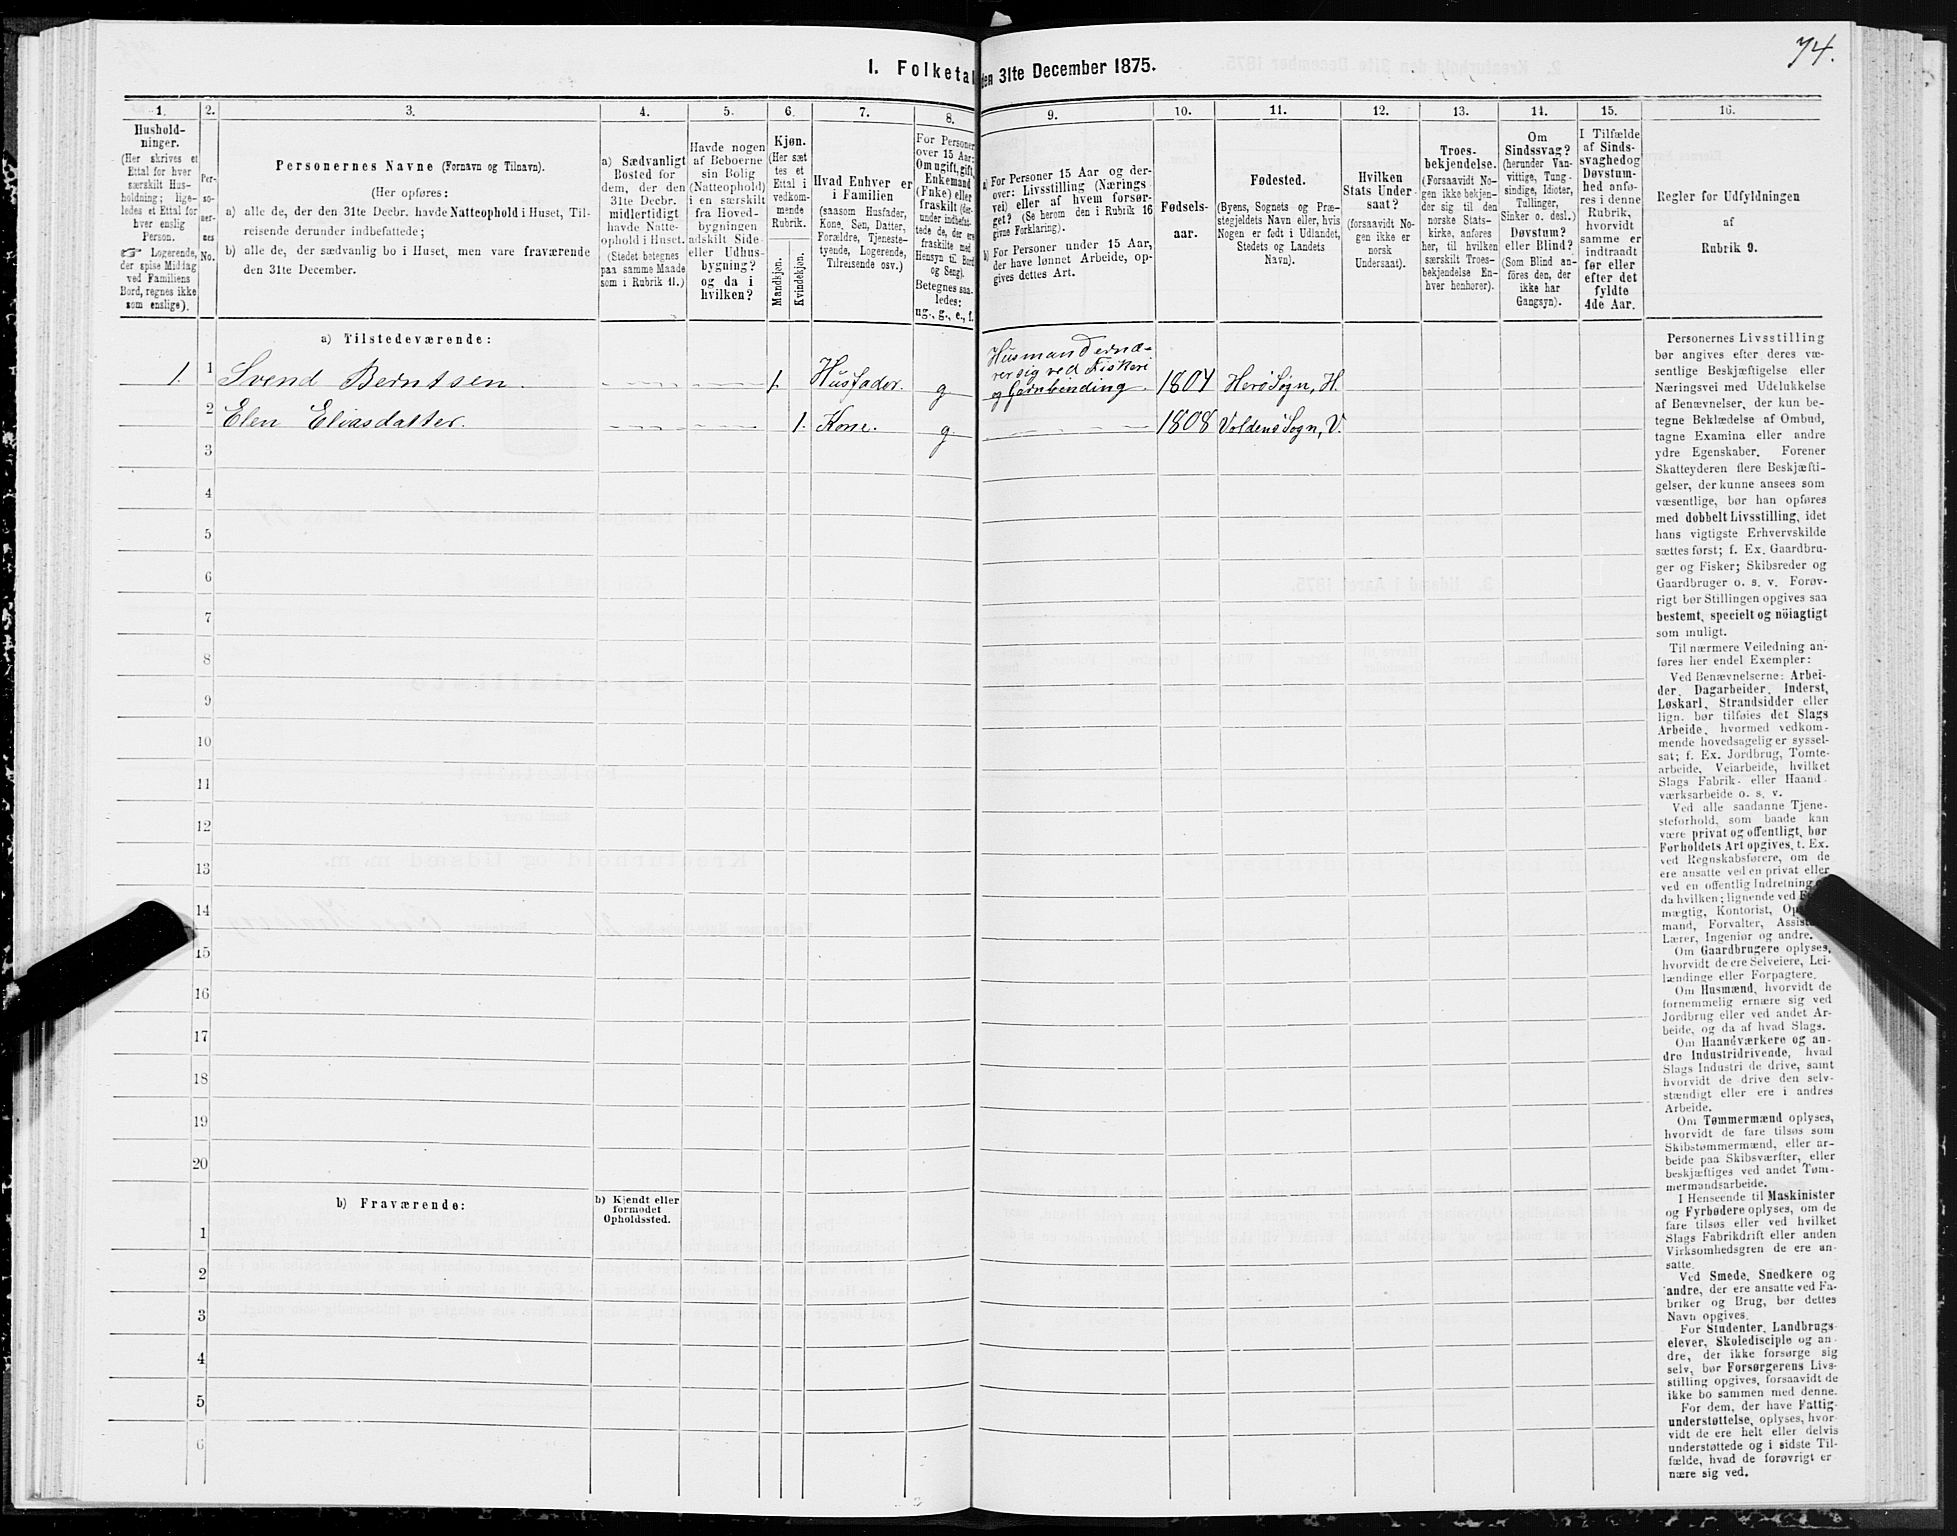 74.
1. Folketal den 31te December 1875.
1.
2.
3.
4.
5.
6.
7.
8.
9.
10.
11.
12.
13.
14.
15.
16.
Hushold-
ninger.
(Her skrives et
Ettal for hver
særskilt Hus-
holdning; lige-
ledes et Ettal for
hver enslig
Person.
☞ Logerende,
der spise Middag
ved Familiens
Bord, regnes ikke
som enslige).
Per-
so-
ner-
nes
No.
Personernes Navne (Fornavn og Tilnavn).
(Her opføres:
a) alle de, der den 31te Decbr. havde Natteophold i Huset, Til-
reisende derunder indbefattede;
b) alle de, der sædvanlig bo i Huset, men vare fraværende
den 31te December.
a) Sædvanligt
Bosted for
dem, der den
31te Decbr.
midlertidigt
havde Natte-
ophold i Huset.
(Stedet betegnes
paa samme Maade
som i Rubrik 11.)
Havde nogen
af Beboerne
sin Bolig
(Natteophold)
i en særskilt
fra Hoved-
bygningen
adskilt Side-
eller Udhus-
bygning?
og da i
hvilken?
Kjøn.
(Her sæt
tes et
Ettal i
vedkom-
mende
Rubrik.
Mandkjøn.
Kvindekjøn.
Hvad Enhver er
i Familien
(saasom Husfader,
Kone, Søn, Datter,
Forældre, Tjeneste-
tyende, Logerende,
Tilreisende osv.)
For Personer
over 15 Aar:
Om ugift, gift,
Enkemand
(Enke) eller
fraskilt (der-
under indbefat-
tede de, der ere
fraskilte med
Hensyn til Bord
og Seng).
Betegnes saa-
ledes:
ug., g., e., f.
a) For Personer 15 Aar og der-
over: Livsstilling (Nærings
vei) eller af hvem forsør-
get? (Se herom den i Rubrik 16
givne Forklaring).
b) For Personer under 15 Aar,
der have lønnet Arbeide, op-
gives dettes Art.
Fødsels-
aar.
Fødested.
(Byens, Sognets og Præ-
stegjeldets Navn eller, hvis
Nogen er født i Udlandet,
Stedets og Landets
Navn).
Hvilken
Stats Under-
saat?
(forsaavidt No-
gen ikke er
norsk
Undersaat).
Troes-
bekjendelse.
(Forsaavidt No-
gen ikke bekjen-
der sig til den
norske Stats-
kirke, anføres
her, til hvilken
særskilt Troes-
bekjendelse En-
hver henhører).
Om
Sindssvag?
(herunder Van-
vittige, Tung-
sindige, Idioter,
Tullinger,
Sinker o. desl.)
Døvstum?
eller Blind?
(Som Blind an-
føres den, der
ikke har
Gangsyn).
I Tilfælde
af Sinds-
svaghed og
Døvstum-
hed anfø-
res i denne
Rubrik,
hvorvidt
samme er
indtraadt
før eller
efter det
fyldte
4de Aar.
Regler for Udfyldningen
af
Rubrik 9.
a) Tilstedeværende:
1. 1 Svend Berntsen. 1. Husfader. g Husmand ernæ-
rer sig ved Fiskeri
og Garnbinding. 1804 Herø Sogn, H.
2 Elen Eliasdatter. 1. Kone. g. 1808 Voldens Sogn, V.
3
4
5
6
7
8
9
10
11
12
13
14
15
16
17
18
19
20
b) Fraværende:
b) Kjendt eller
formodet
Opholdssted.
1
2
3
4
5
6
Personernes Livsstilling
bør angives efter deres væ-
sentlige Beskjæftigelse eller
Næringsvei med Udelukkelse
af Benævnelser, der kun be-
tegne Beklædelse af Ombud,
tagne Examina eller andre
ydre Egenskaber. Forener
Skatteyderen flere Beskjæfti-
gelser, der kunne ansees som
væsentlige, bør han opføres
med dobbelt Livsstilling, idet
hans vigtigste Erhvervskilde
sættes først; f. Ex. Gaardbru-
ger og Fisker; Skibsreder og
Gaardbruger o. s. v. Forøv-
rigt bør Stillingen opgives saa
bestemt, specielt og nöiagtigt
som muligt.
Til nærmere Veiledning an-
føres her endel Exempler:
Ved Benævnelserne: Arbei-
der, Dagarbeider, Inderst,
Løskarl, Strandsidder eller
lign. bør tilføies det Slags
Arbeide, hvormed vedkom-
mende hovedsagelig er syssel-
sat; f. Ex. Jordbrug, Tomte-
arbeide, Veiarbeide, hvilket
Slags Fabrik- eller Haand-
værksarbeide o. s. v.
Ved alle saadanne Tjene-
steforhold, som baade kan
være privat og offentligt, bør
Forholdets Art opgives, t. Ex.
ved Regnskabsførere, om de
ere ansatte ved en privat eller
ved en offentlig Indretning
da hvilken; lignende ved
mægtig, Kontorist,
mand, Forvalter,
Lærer, Ingeniør og andre.
Om Gaardbrugere oplyses,
hvorvidt de ere Selveiere, Lei-
lændinge eller Forpagtere.
Om Husmænd, hvorvidt de
fornemmelig ernære sig ved
Jordbrug eller ved andet Ar-
beide, og da af hvad Slags.
Om Haandværkere og an-
dre Industridrivende, hvad
Slags Industri de drive, samt
hvorvidt de drive den selv-
stændigt eller ere i andres
Arbeide.
Om Tømmermænd oplyses,
hvorvidt de fare tilsøs som
Skibstømmermænd, eller ar-
beide paa Skibsværfter, eller
beskjæftiges ved andet Tøm-
mermandsarbeide.
I Henseende til Maskinister
og Fyrbødere oplyses, om de
fare tilsøs eller ved hvilket
Slags Fabrikdrift eller anden
Virksomhedsgren de ere an-
satte.
Ved Smede, Snedkere og
andre, der ere ansatte ved Fa-
briker og Brug, bør dettes
Navn opgives.
For Studenter, Landbrugs-
elever, Skoledisciple og an-
dre, der ikke forsørge sig
selv, bør Forsørgerens Livs-
stilling opgives, forsaavidt de
ikke bo sammen med denne.
For dem, der have Fattig-
understøttelse, oplyses, hvor-
vidt de ere helt eller delvis
understøttede og i sidste Til-
fælde, hvad de forøvrigt er-
nære sig ved.